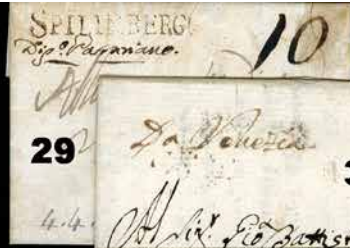 SPILIMBERGO
10
Dip.º Passariano.
29
Da Venezia
4.4.
Al Sig.r Gio Battis